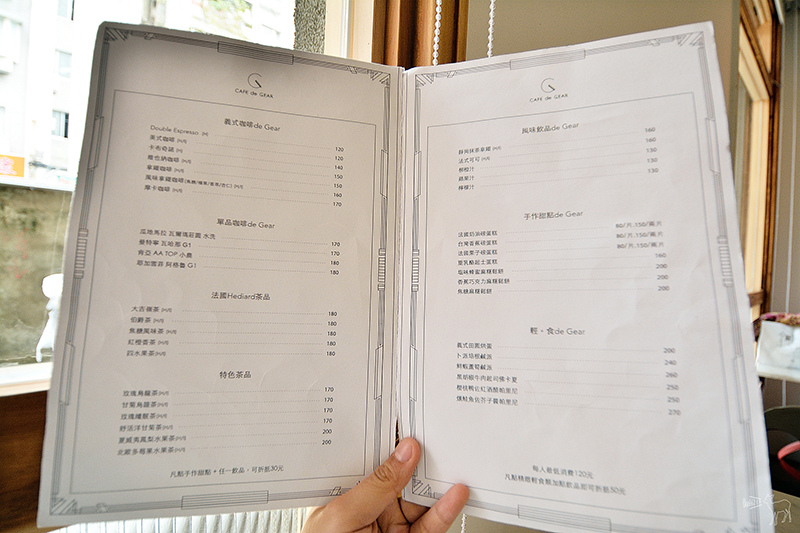 CAFÉ de GEAR
義式咖啡de Gear
Double Espresso [H] 120
美式咖啡 [H/I] 120
卡布奇諾 [H] 140
維也納咖啡 [H/I] 150
拿鐵咖啡 [H/I] 150
風味拿鐵咖啡(焦糖/榛果/香草/杏仁) [H/I] 160
摩卡咖啡 [H/I] 170
單品咖啡de Gear
瓜地馬拉 瓦爾瑪莊園 水洗 170
曼特寧 瓦哈那 G1 170
肯亞 AA TOP 小農 180
耶加雪菲 阿格魯 G1 180
法國Hediard茶品
大吉嶺茶 [H/I] 180
伯爵茶 [H/I] 180
焦糖風味茶 [H/I] 180
紅橙香茶 [H/I] 180
四水果茶 [H/I] 180
特色茶品
玫瑰烏龍茶 [H/I] 170
甘菊烏龍茶 [H/I] 170
玫瑰纖靚茶 [H/I] 170
舒活洋甘菊茶 [H/I] 170
夏威夷鳳梨水果茶 [H/I] 200
北歐多莓果水果茶 [H/I] 200
凡點手作甜點 + 任一飲品, 可折抵30元
CAFÉ de GEAR
風味飲品de Gear
錫蘭抹茶拿鐵 [H/I] 160
法式可可 [H/I] 160
柳橙汁 130
蘋果汁 130
檸檬汁 130
手作甜點de Gear
法國奶油磅蛋糕 80/片.150/兩片
台灣香蕉磅蛋糕 80/片.150/兩片
法國栗子磅蛋糕 80/片.150/兩片
重乳酪起士蛋糕 160
塩味蜂蜜麻糬鬆餅 200
香蕉巧克力麻糬鬆餅 200
焦糖麻糬鬆餅 200
輕。食de Gear
義式田園烘蛋 200
卜派培根鹹派 240
鮮蝦蘆筍鹹派 260
黑胡椒牛肉起司佛卡夏 250
櫻桃鴨佐紅酒醋帕里尼 250
燻鮭魚佐芥子醬帕里尼 270
每人最低消費120元
凡點精緻輕食類加點飲品即可折抵50元